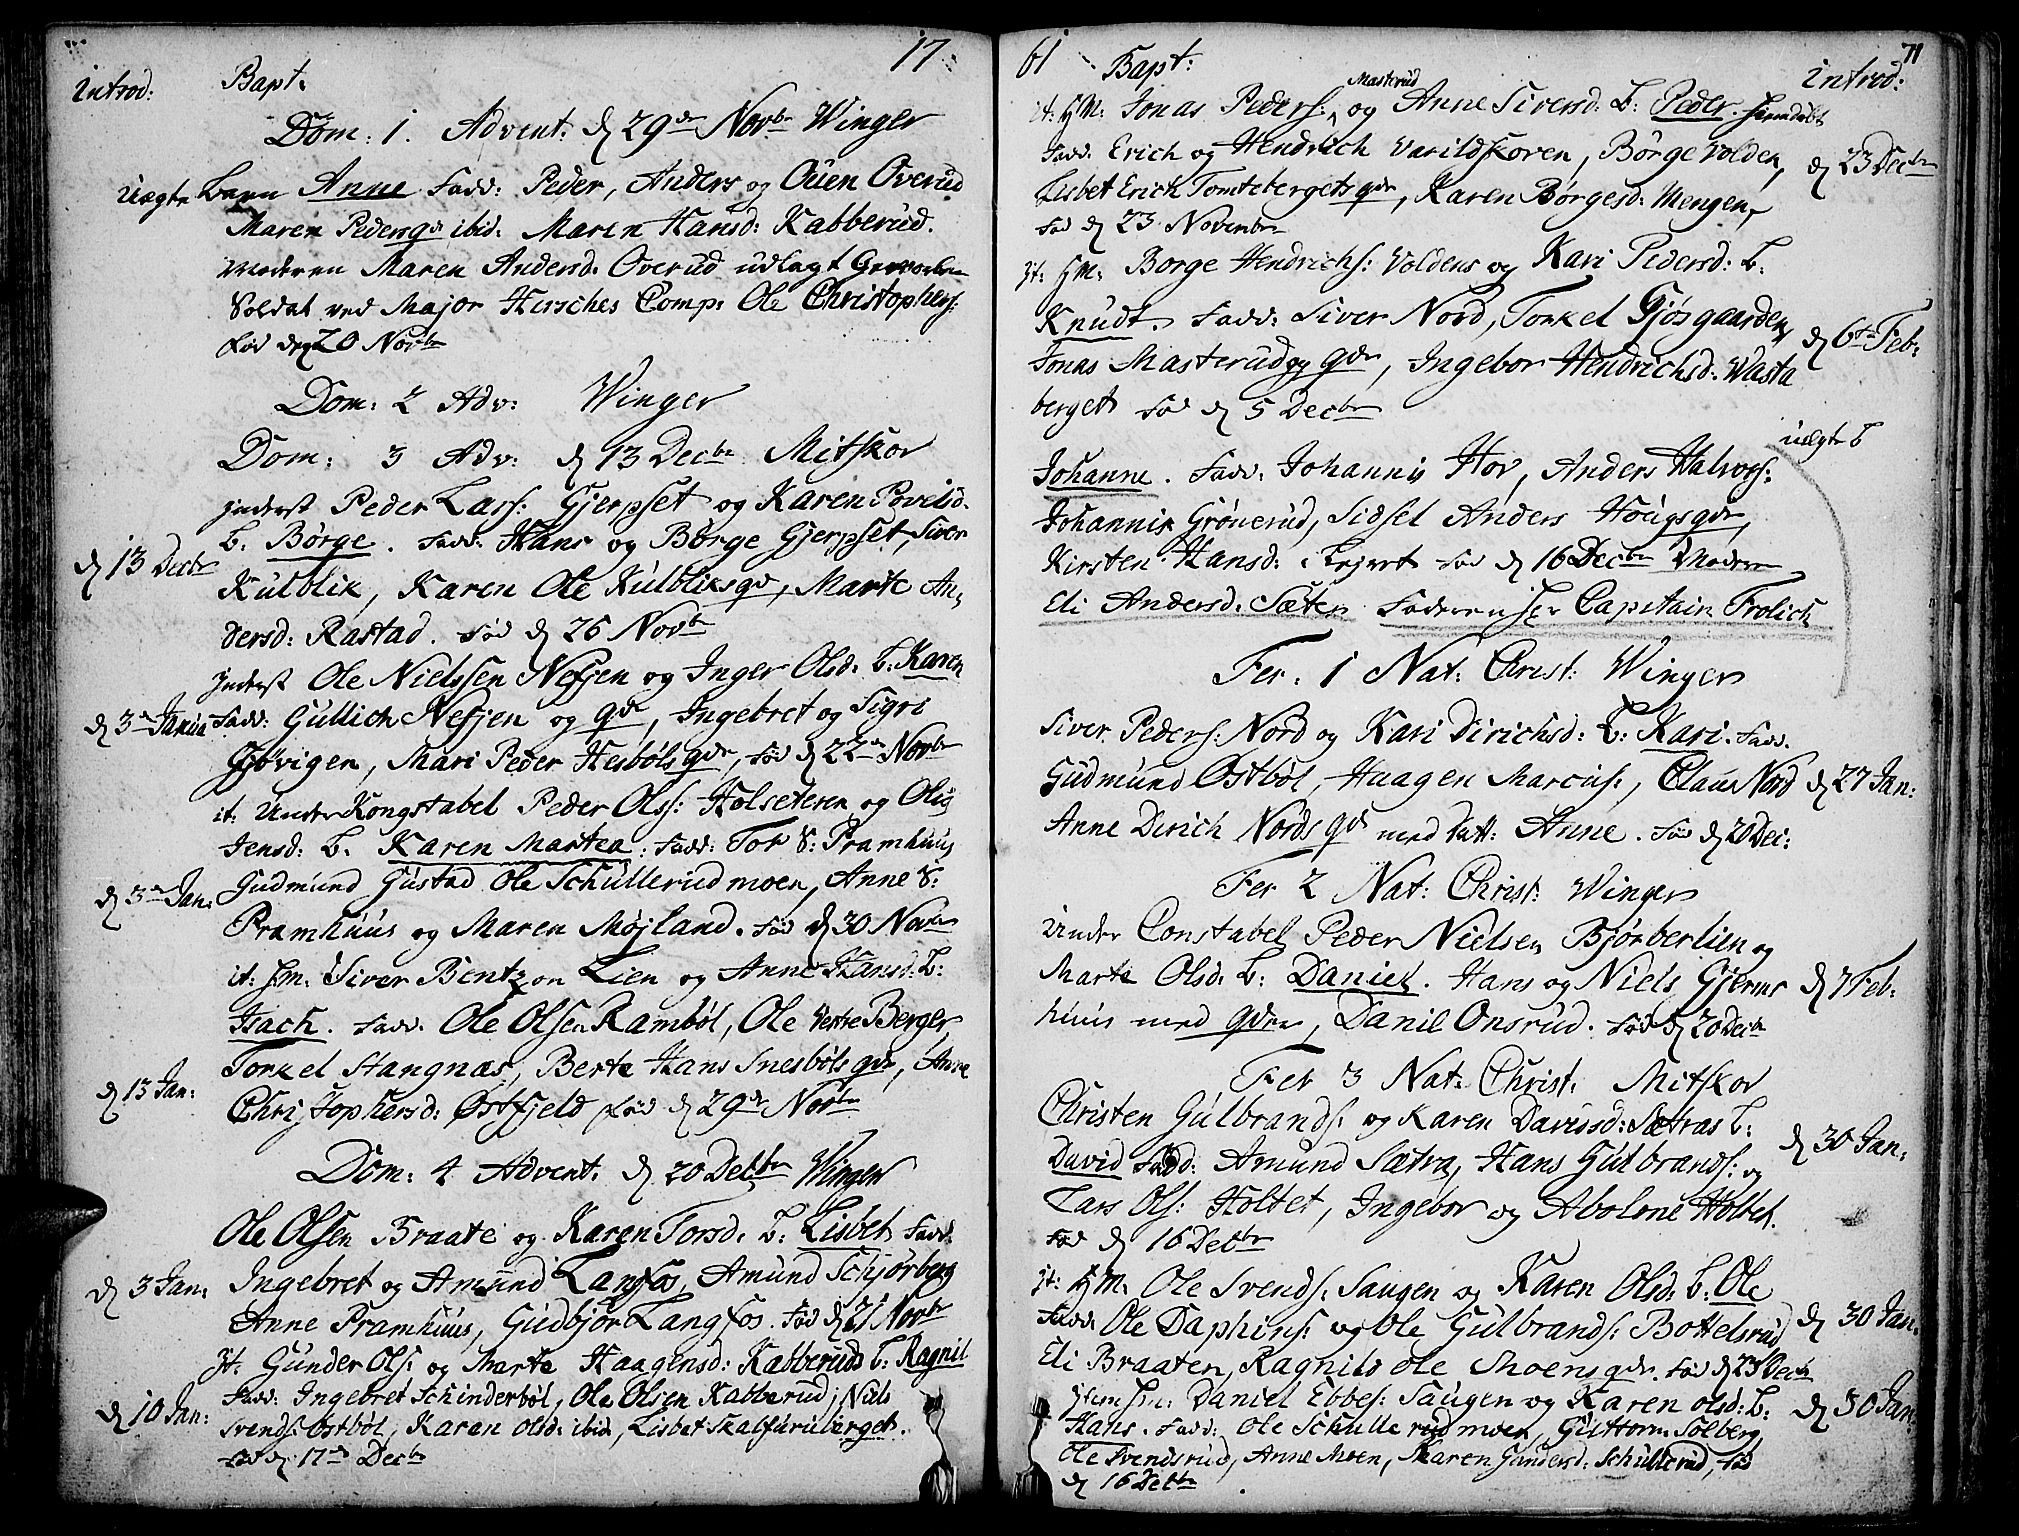 17
introd:
Bapt:
Dom: 1. Advent: d 29de Novbr Winger
Uægte Barn Anne Fadd: Peder, Anders og Ouen Overud
Maren Pedersqv ibid. Maren Hansd: Kabberud.
Moderen Maren Andersd. Overud udlagt
Soldat ved Major Hirsches Comp: Ole Christophers:
fød den 20 Novbr
Dom: 2 Adv: Winger
Dom: 3 Adv: d 13 Decbr Mitskov
Inderst Peder Lars: Gjerpset og Karen Povelsd.
B. Børge. Fadd: Hans og Børge Gjerpset, Siver
d 13 Decbr
Kulblik, Karen Ole Kulbliksqv, Marte An,
dersd: Rastad. Fød d 26 Novbr
Inderst Ole Nielssen Nefsen og Inger Olsd. B: Karen
d 3de Janua
Fadd: Gullich Nefsen og qv, Ingebret og Sigri
Gjøvigen, Mari Peder Hesbølsqv, fød d 22de Novbr
it: Under Kongstabel Peder Olss: Holseteren og Olia
Jensd: B. Karen Martea. Fadd: Tor S: Pramhuus
d 3de Jan:
Gudmund Gustad Ole Schullerudmoen, Anne S:
Pramhuus og Maren Møjland. Fød d 30 Novbr
it: Hm. Siver Bentzon Lien og Anne Hansd: B:
Isach. Fadd. Ole Olsen Rambøl, Ole Vestre Berger
Torkel Stangnæs, Berte Hans Snesbøls qv, Anne
d 13 Jan:
Christophersd: Østfjeld fød d 29de Novbr
Dom: 4 Advent. d 20 Decbr Winger
Ole Olsen Braate og Karen Torsd. B: Lisbet Fadd.
d 3 Jan:
Ingebret og Amund Langfos, Amund Schjørberg
Anne Pramhuus, Gudbjør Langfos. Fød d 21 Novbr
It: Gunder Ols: og Marte Haagensd: Kabberuds B: Ragnil
Fadd: Ingebret Schinderbøl, Ole Olsen Kabberud, Niels
d 10 Jan:
Svends: Østbøl, Karen Olsd: ibid, Lisbet Skalfuruberget.
fød d 17de Decbr
61
Bapt:
71
introd:
Masterud
it: HM: Jonas Peders: og Anne Siversd: B: Peder. hiemdøbt
Fadd. Erich og Hendrich Varildskoven, Børge Volden,
d 23 Decbr
Lisbet Erich Tomtebergetsqv, Karen Børgesd: Mengen,
Fød d 23 Novembr
It: HM: Børge Hendrichs: Voldens og Kari Pedersd: B.
Knudt. Fadd: Siver Nord, Torkel Gjøsgaarden,
d 6te Feb:
Jonas Masteruds qv, Ingebor Hendrichsd: Wasta
berget Fød d 5 Decbr
uægte b
Johanne. Fadd. Johannis Hov, Anders Halvors:
Johannis Grønerud, Sidsel Anders Hougsqv,
Kirsten Hansd: Lejret fød d 16 Decbr Moderen
Eli Andersd: Sæter Faderen Hr Capitain Frolich
Fer. 1 Nat: Christ: Winger
Siver Peders: Nord og Kari Dirichsd: B: Kari. Fadd.
Gudmund Østbøl, Haagen Marcus:, Claus Nord
d 27 Jan:
Anne Dirich Nords qv med Datt: Anne. Fød d 20 Dec:
Fer 2 Nat: Christ: Winger
Under Constabel Peder Nielsen Bjørberlien og
Marte Olsd: B: Daniel. Hans og Niels Gjerms
d 7 Feb:
huus med qvr, Danil Onsrud. Fød d 20 Decbr
Fer 3 Nat: Christ: Mitskov
Christen Gulbrands: og Karen Davidsd: Sætras B:
d 30 Jan:
David Fadd: Amund Sætra, Hans Gulbrands: og
Lars Ols: Holtet, Ingebor og Abolone Holtet.
Fød d 16 Decbr
It: HM: Ole Svends: Saugen og Karen Olsd: B: Ole
Fadd: Ole Daphins: og Ole Gulbrands: Bottelsrud
d 30 Jan:
Eli Braaten, Ragnild Ole Moensqv. Fød d 23 Decbr
Item Hm: Daniel Ebbes: Saugen og Karen Olsd: B:
d 30 Jan:
Hans. Fadd: Ole Schullerudmoen, Guttorm Solberg
Ole Svendsrud, Anne Moen, Maren Gundersd: Schullerud, fød
d 16 Decbr